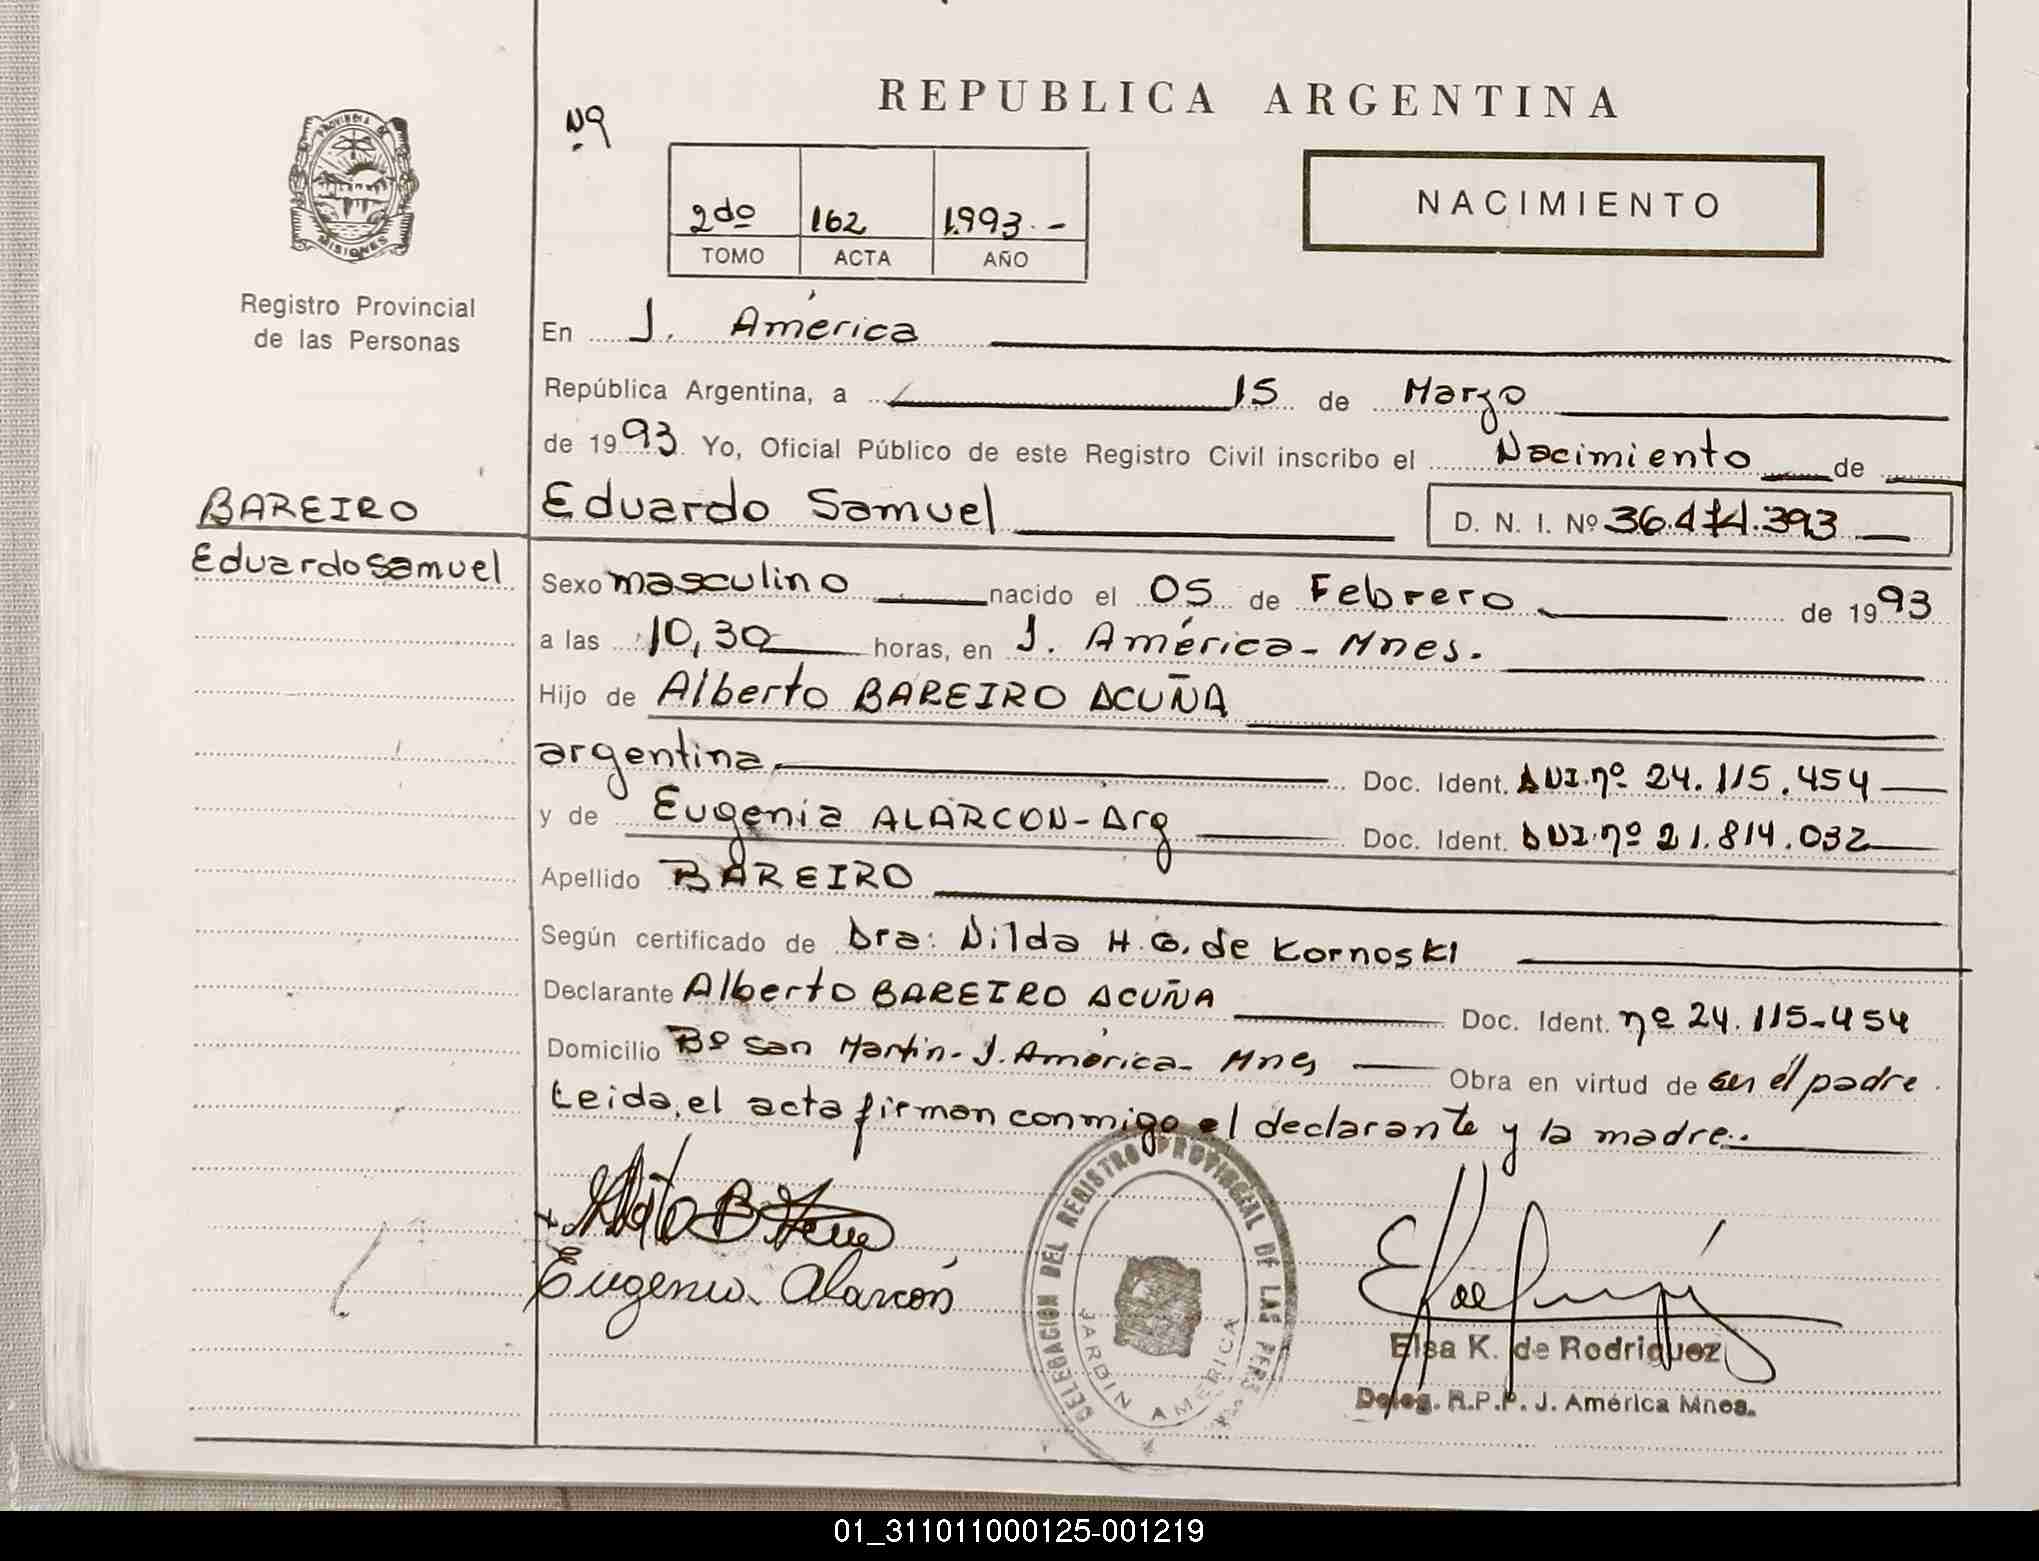 REPUBLICA ARGENTINA
Nº
NACIMIENTO
2do 162 1.993.-
TOMO ACTA AÑO
PROVINCIA DE
MISIONES
Registro Provincial
de las Personas
En J. América
República Argentina, a 15 de Marzo
de 1993. Yo, Oficial Público de este Registro Civil inscribo el Nacimiento de
BAREIRO
Eduardo Samuel
Eduardo Samuel D. N. I. Nº
Sexo masculino nacido el 05 de Febrero de 1993
a las 10,30 horas, en J. América - Mnes.
Hijo de Alberto BAREIRO ACUÑA
argentina Doc. Ident. DNI. nº 24.115.454
y de Eugenia ALARCON-Arg Doc. Ident. DNI. nº 21.814.032
Apellido BAREIRO
Según certificado de Dra: Nilda H. G. de Kornoski
Declarante Alberto BAREIRO ACUÑA Doc. Ident. nº 24.115-454
Domicilio Bº San Martín - J. América - Mnes Obra en virtud de ser él padre.
Leida, el acta firman conmigo el declarante y la madre.-
Eugenia Alarcón
DELEGACION DEL REGISTRO PROVINCIAL DE LAS PERS
JARDIN AMERICA
Elsa K. de Rodriguez
Deleg. R.P.P. J. América Mnes.
01_311011000125-001219